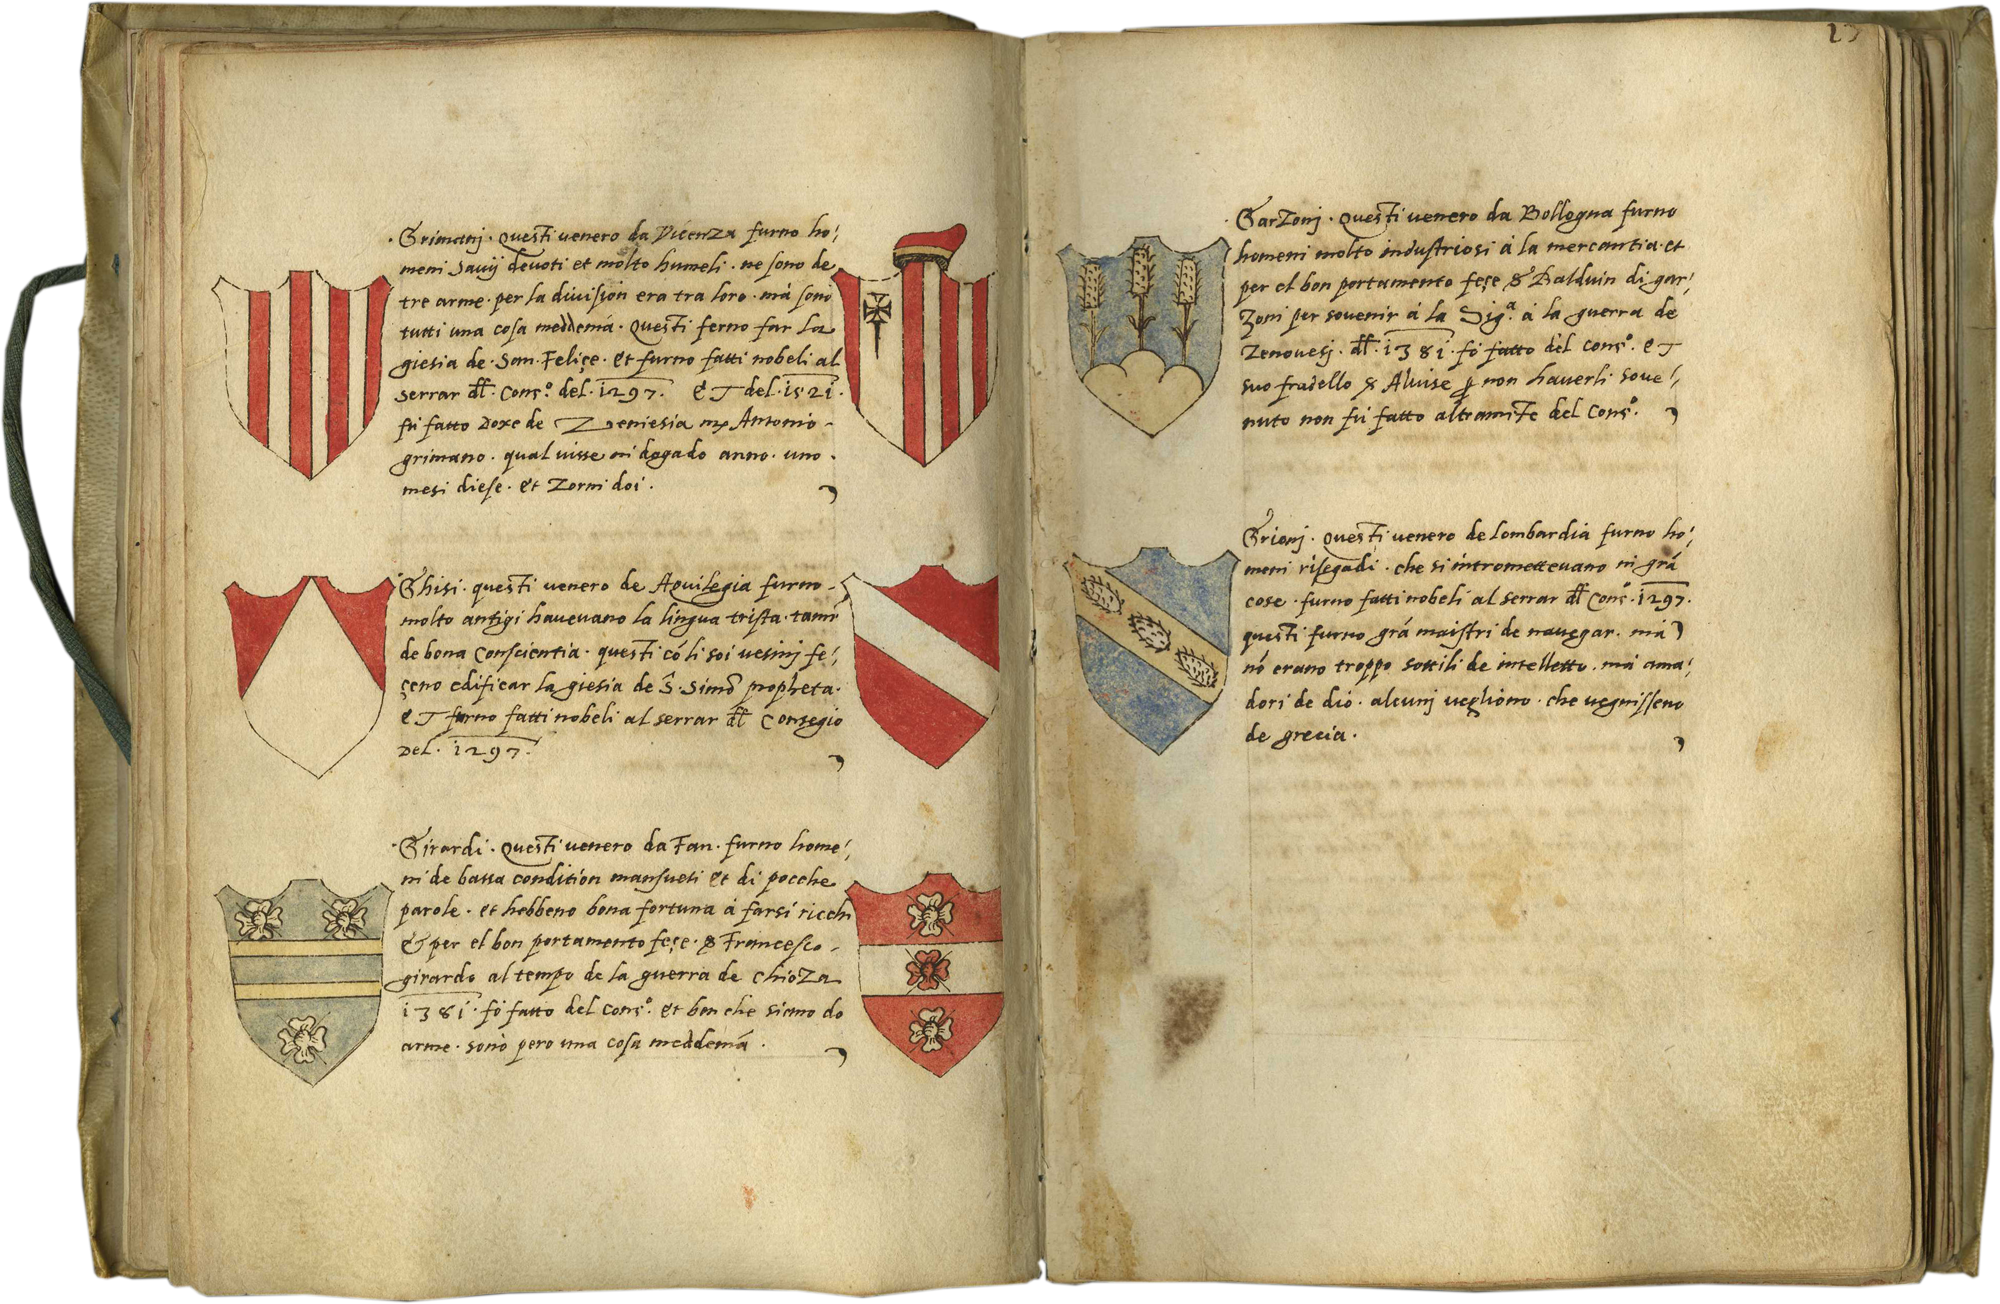 Grimanj · questi venero da Vicenza furno ho⸗
meni Savij devoti et molto humeli · ne sono de
tre arme · per la division era tra loro · mà sono
tutti una cosa meddemá · questi ferno far la
giesia de · San · Feliçe · et furno fatti nobeli al
serrar dłł Cons.º del · 1297 · ET del · 1521 ·
fù fatto Doxe de Zeniesia Antonio
grimano · qual visse in dogado anno · uno ·
mesi diese · et Zorni doi ·
Ghisi · questi venero de Aquilegia furno
molto antigi havevano la lingua trista · tamē
de bona Conscientia · questi cō li soi vesinj fe⸗
çeno edificar la giesia de S · Simō propheta ·
ET furno fatti nobeli al serrar dłł Consegio
Del · 1297 ·
Girardi · questi venero da Fan · furno home⸗
ni de bassa condition mansueti et di pocche
parole · et hebbeno bona fortuna à farsi ricchi
& per el bon portamento feçe · Francesco
girardo al tempo de la guerra de Chioza
1381 · fò fatto del Cons.º et ben che siano do
arme · sono pero una cosa meddemá ·
23
Garzonj · questi venero da Bollogna furno
homeni molto industriosi à la mercantia · et
per el bon portamento feçe Balduin di gar⸗
zoni per sovenir à la Sig.ª à la guerra de
Zenovesj · dłł · 1381 · fò fatto del Cons.º ET
suo fradello Alvise ꝑ non haverli sove⸗
nuto non fù fatto altramiTe del Cons.º
Grionj · questi venero de lombardia furno ho⸗
meni risegadi · che si intromettevano in grā
cose · furno fatti nobeli al serrar dłł Cons.º 1297 ·
questi furno grā maistri de navegar · mà
nō erano troppo sottili de intelletto · mà ama⸗
dori de dio · alcunj vegliono · che vegnisseno
de grecia ·